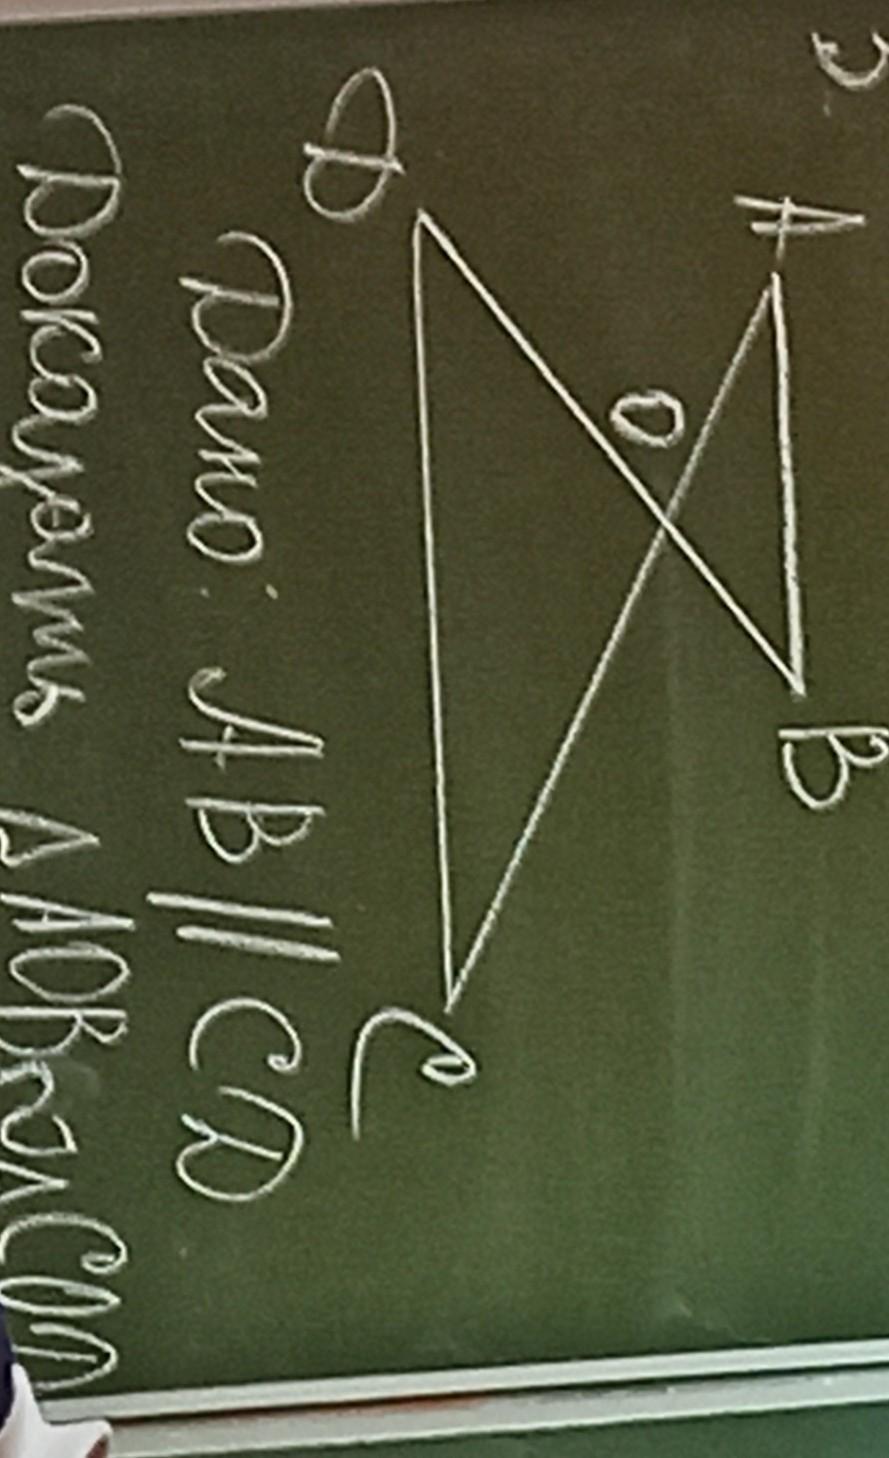 A
B
O
D
C
Дано: AB || CD
Доказать △AOB ~ △COD